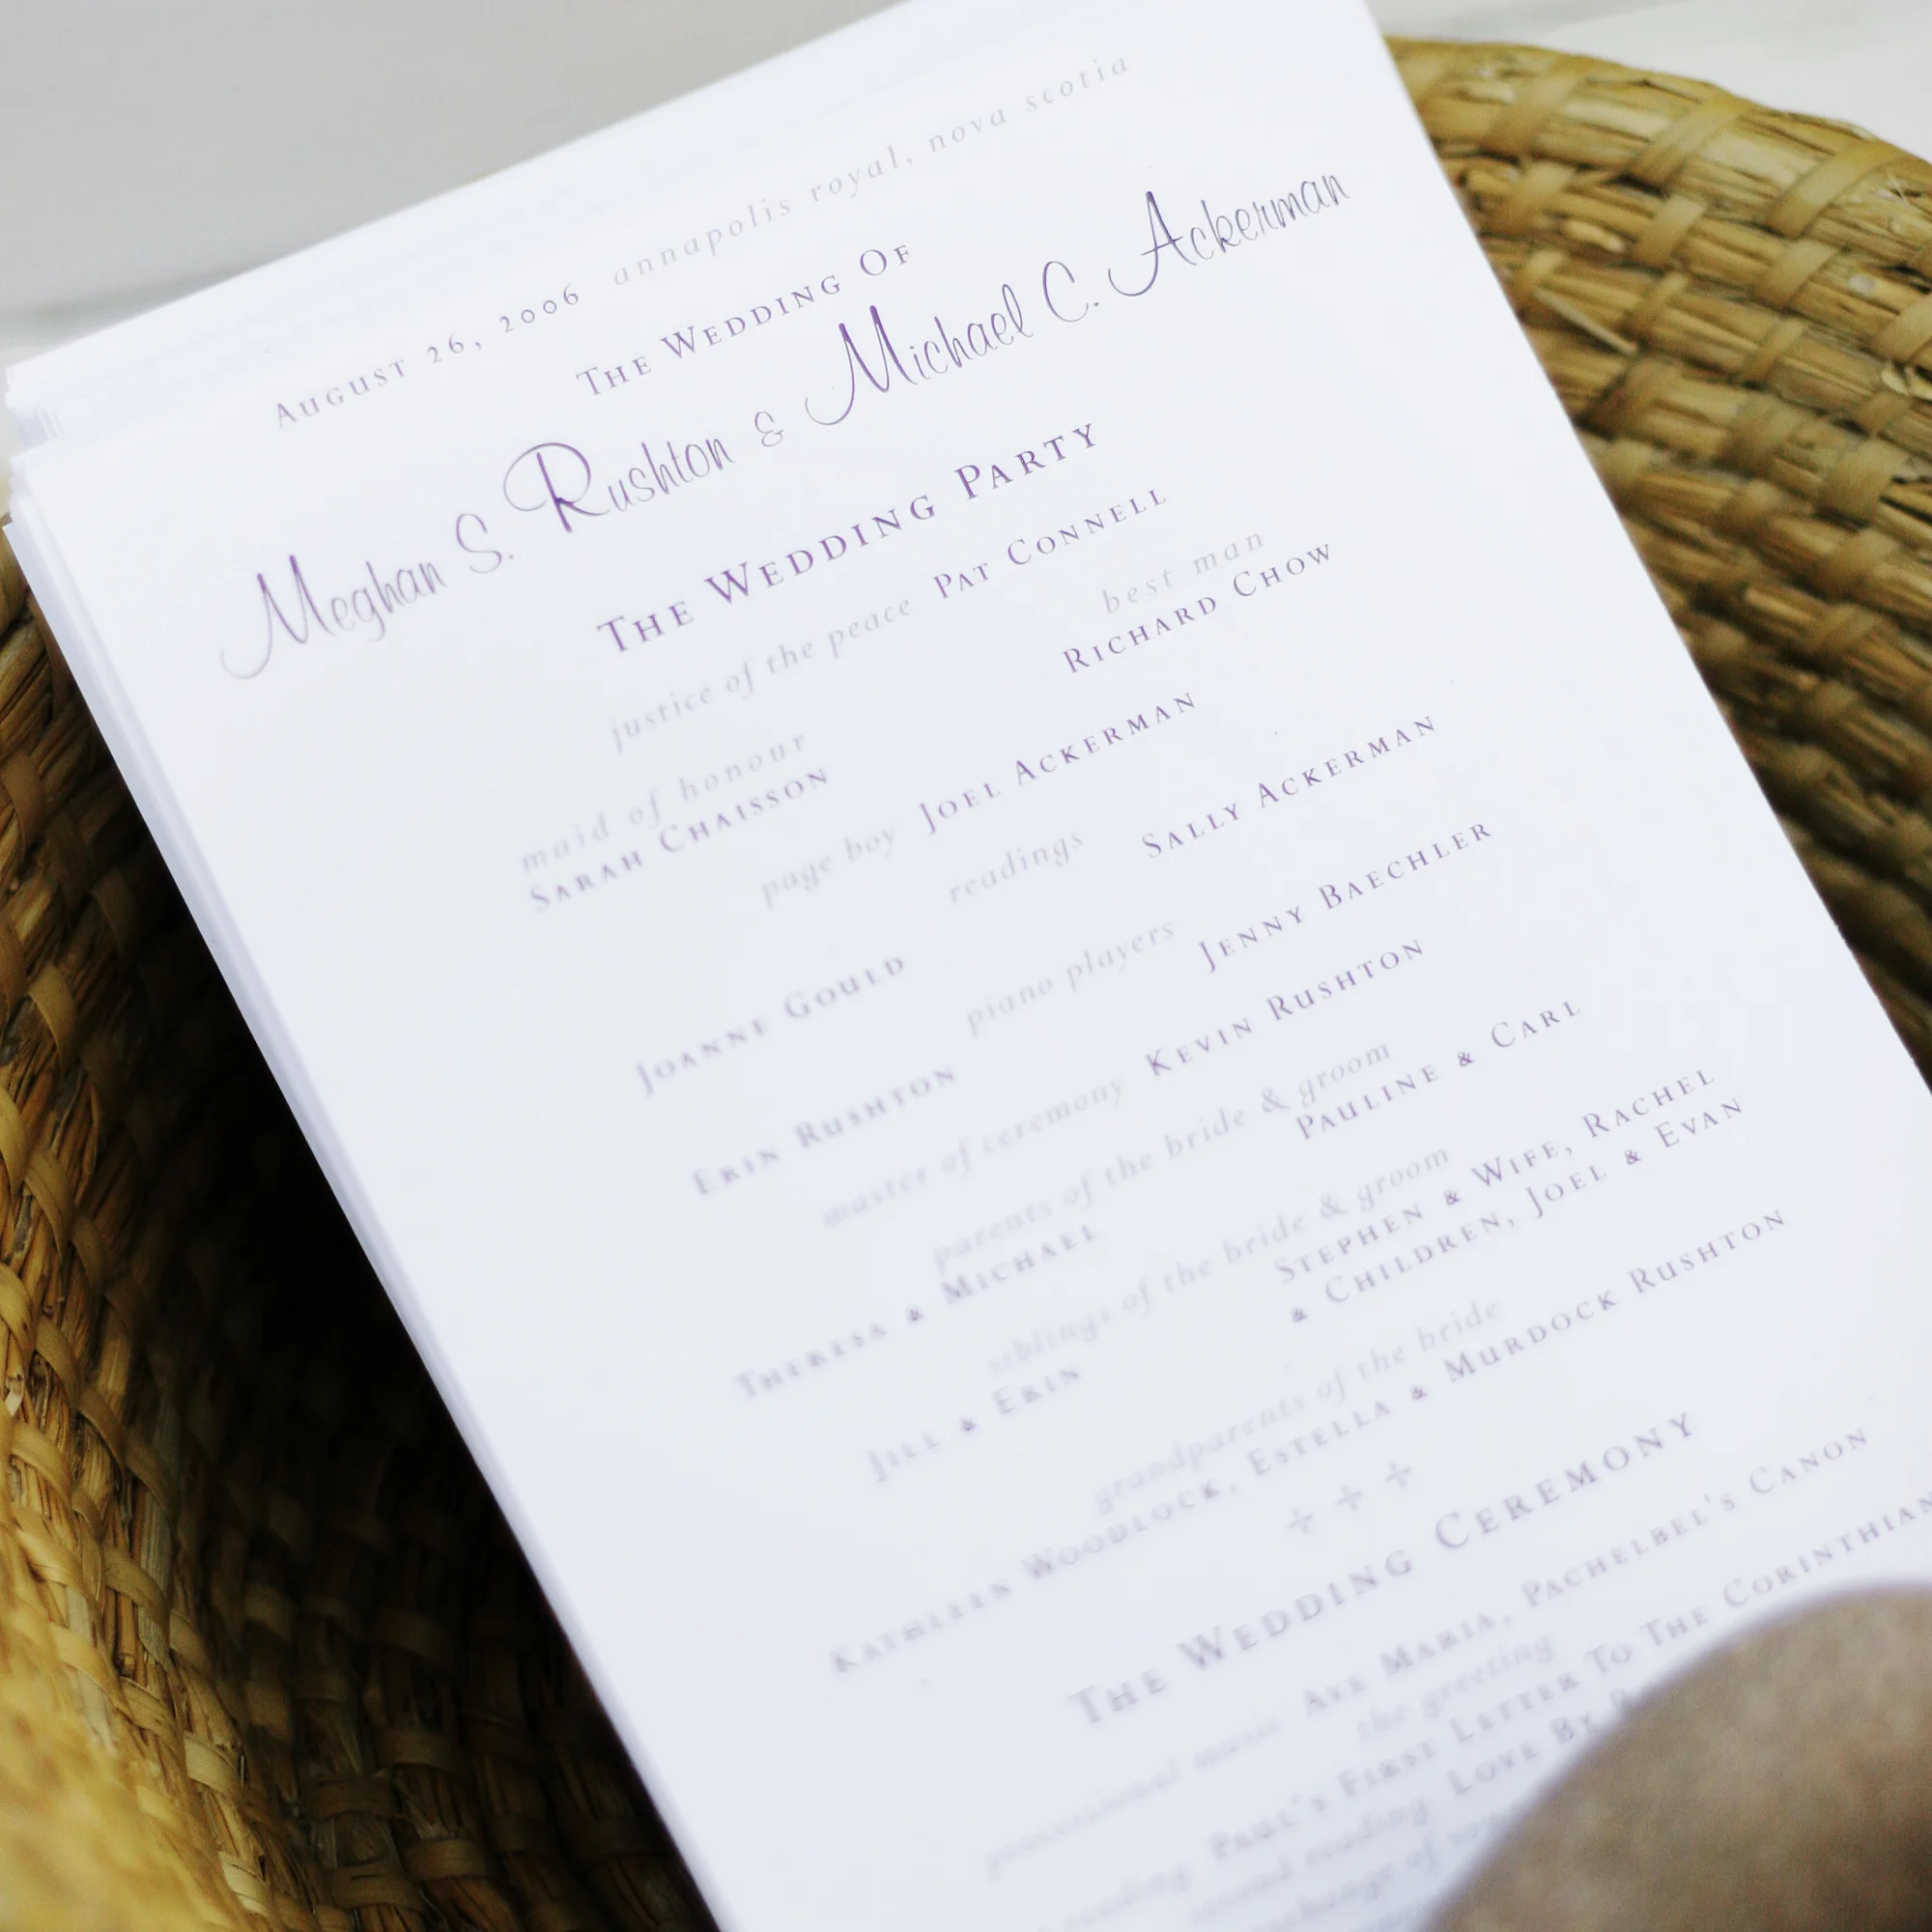 August 26, 2006 annapolis royal, nova scotia
The Wedding Of
Meghan S. Rushton & Michael C. Ackerman
The Wedding Party
justice of the peace Pat Connell
maid of honour best man
Sarah Chaisson Richard Chow
page boy Joel Ackerman
readings
Joanne Gould Sally Ackerman
piano players
Erin Rushton Jenny Baechler
master of ceremony Kevin Rushton
parents of the bride & groom
Theresa & Michael Pauline & Carl
siblings of the bride & groom
Jill & Erin Stephen & Wife, Rachel
& Children, Joel & Evan
grandparents of the bride
Kathleen Woodlock, Estella & Murdock Rushton
The Wedding Ceremony
processional music Ave Maria, Pachelbel's Canon
the greeting
reading Paul's First Letter To The Corinthian
second reading Love By
exchange of